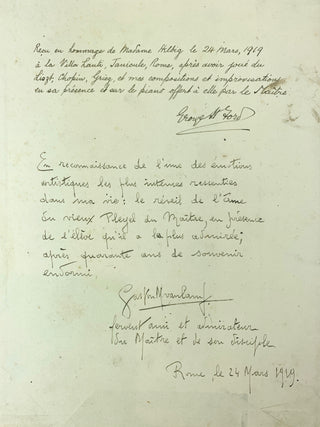 Reçu en hommage de Madame Helbig le 24 Mars, 1919
à la Villa Lante, Janicule, Rome, après avoir joué du
Liszt, Chopin, Grieg, et mes compositions et improvisations
en sa présence et sur le piano offert à elle par le Maître
George H
En reconnaissance de l'une des émotions
artistiques les plus intenses ressenties
dans ma vie: le réveil de l'âme
du vieux Pleyel du Maître, en présence
de l'élève qu'il a le plus admirée;
après quarante ans de souvenir
endormi.
Gaston
fervent ami et admirateur
du Maître et de son disciple
Rome, le 24 Mars 1919.